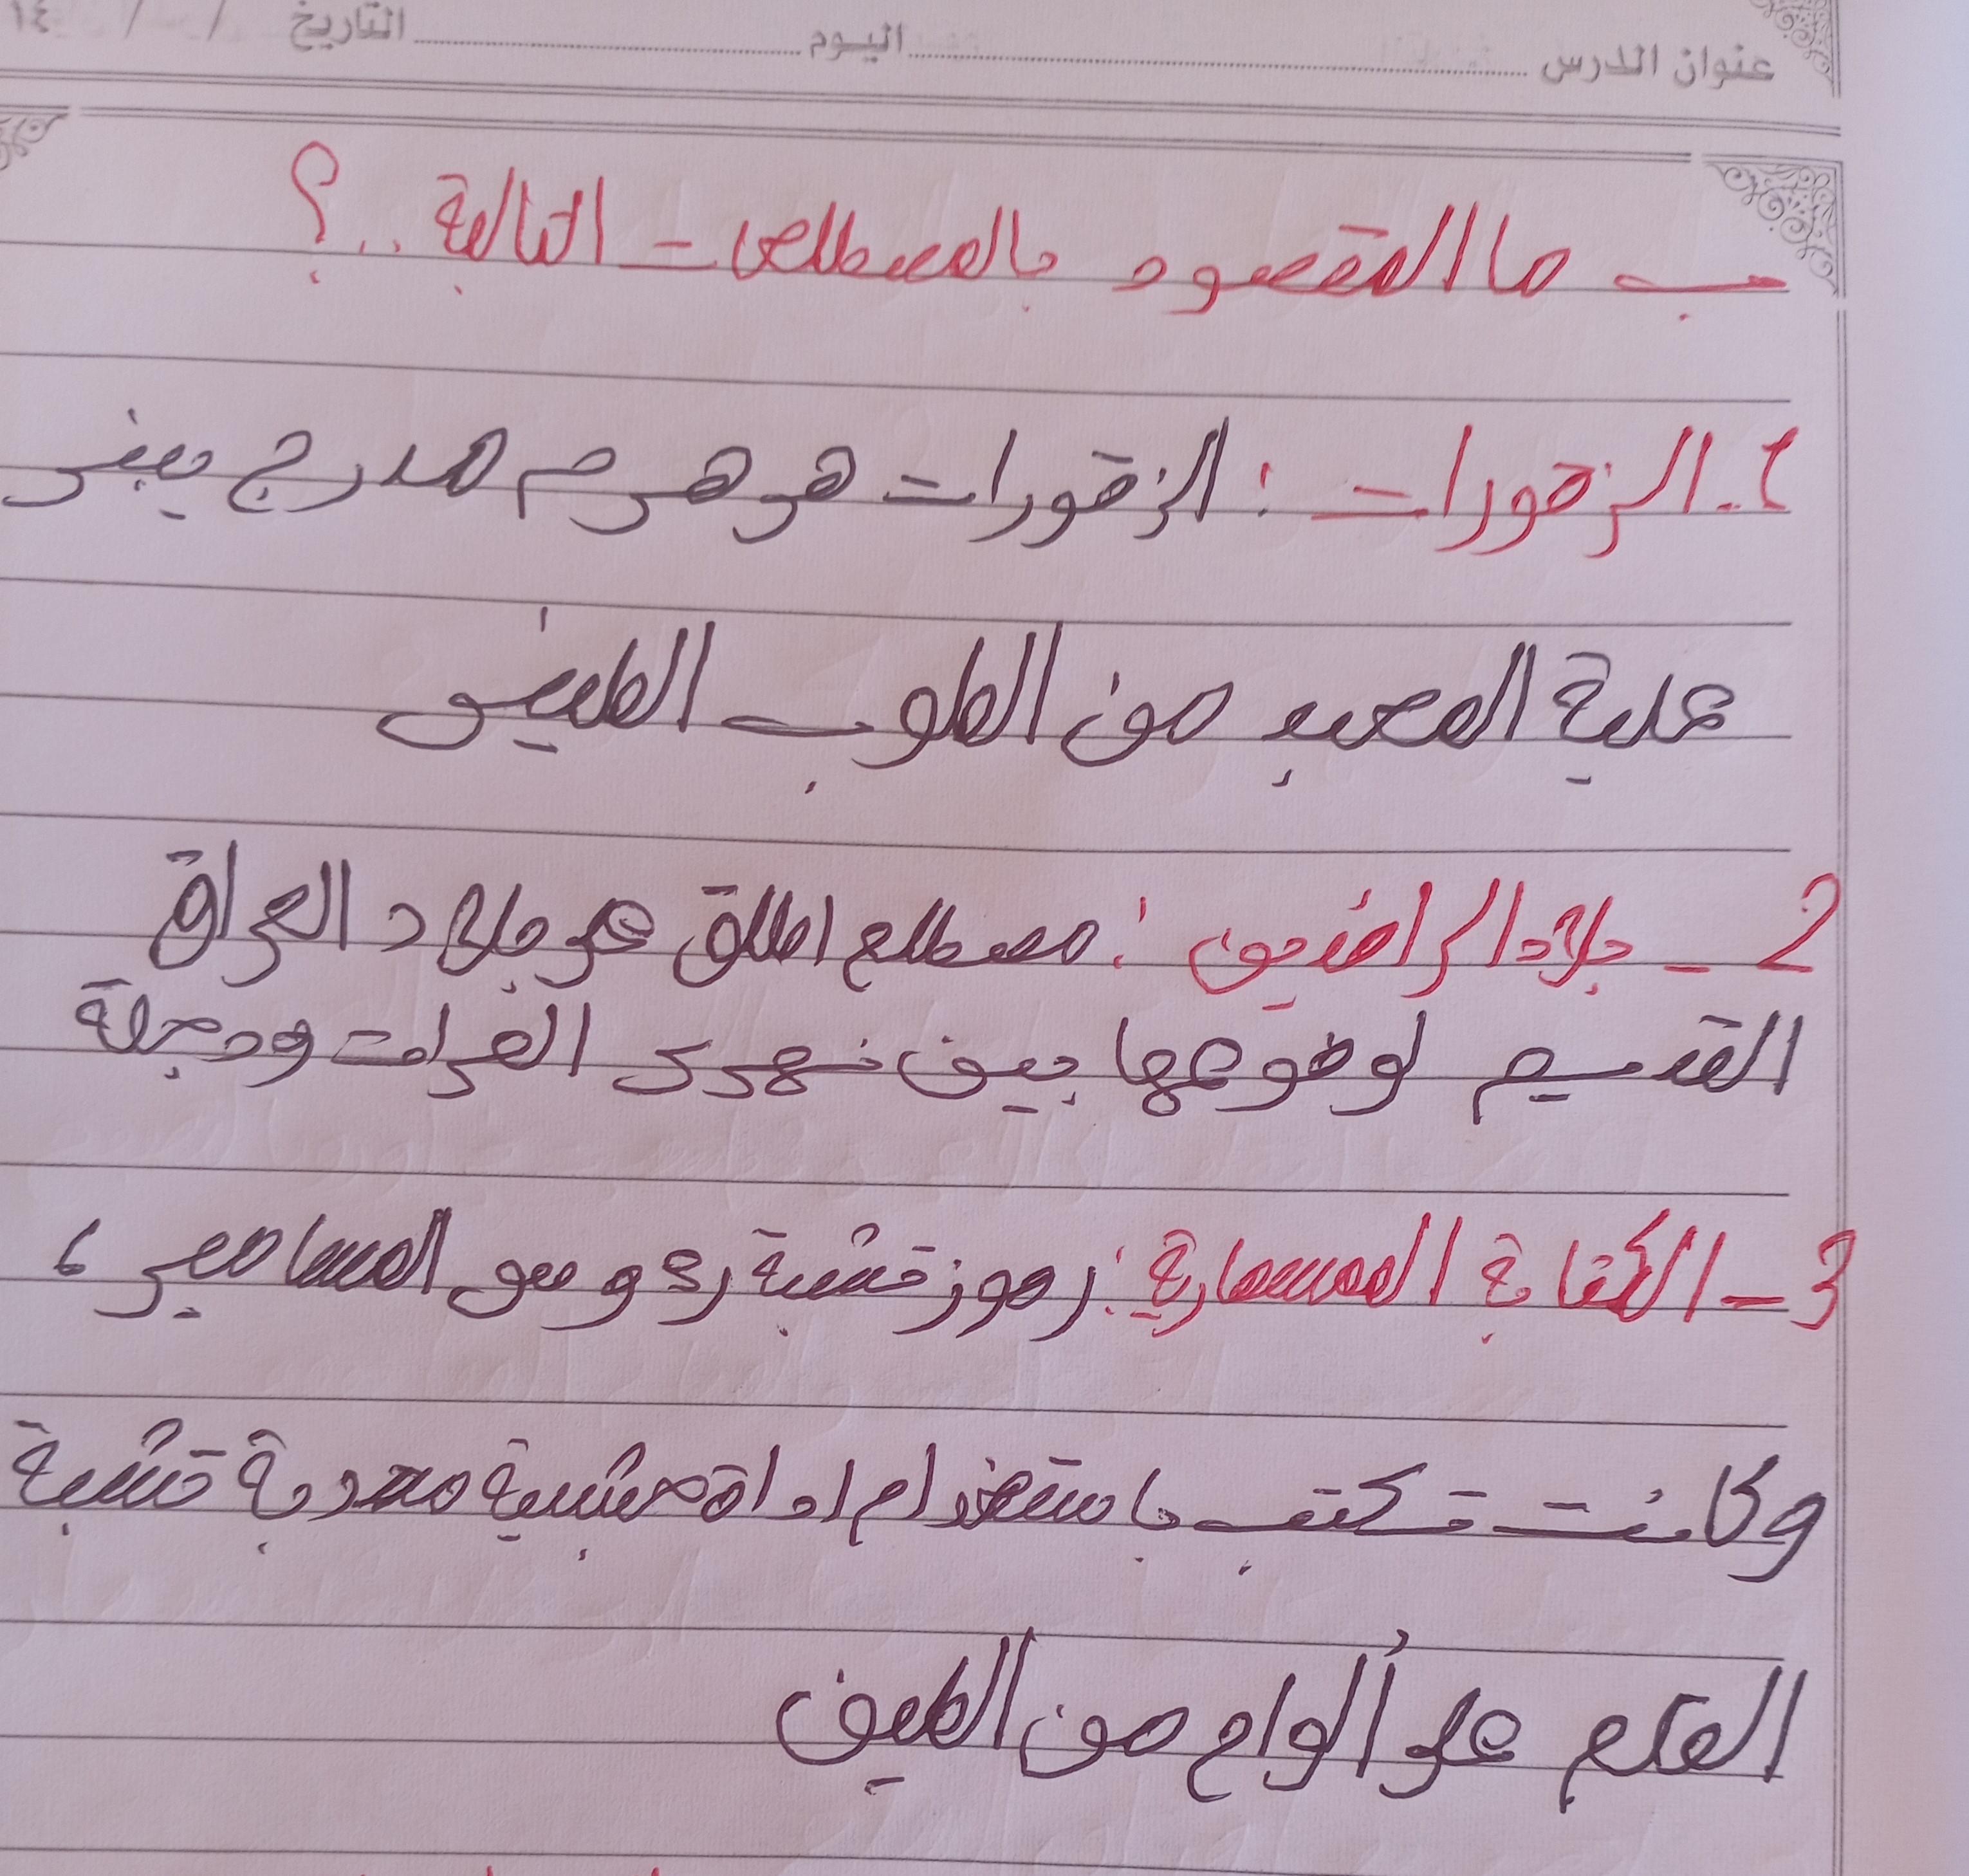 عنوان الدرس اليوم التاريخ / / ١٤
ب ما المقصود بالمصطلحات التالية..؟
1- الزقورات : الزقورات هو هرم مدرج يبنى
علية المعبد من الطوب الطيني
2 - بلاد الرافدين : مصطلح اطلق على بلاد العراق
القديم لوقوعها بين نهري الفرات ودجلة
3 - الكتابة المسمارية : رموز تشبة رءووس المسامير ،
وكانت تكتب باستخدام اداة خشبية مدببة تشبة
القلم على ألواح من الطين